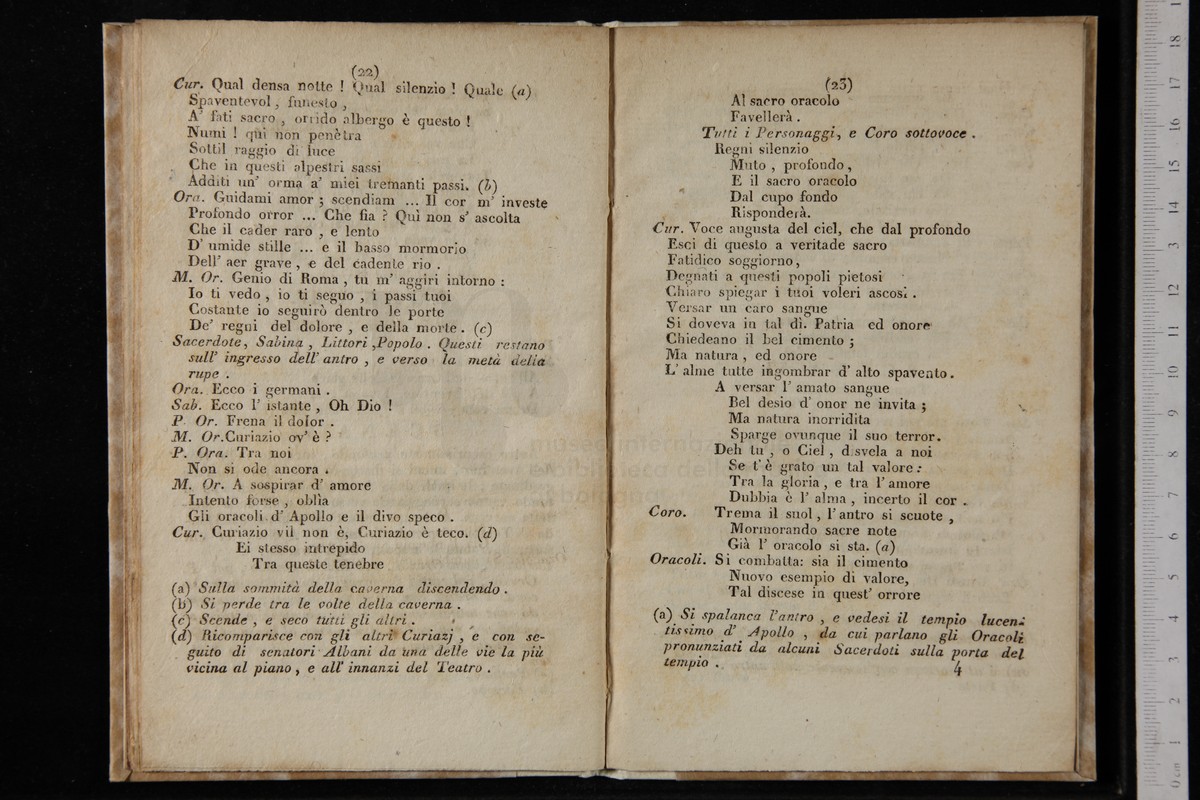 (22)
Cur. Qual densa notte ! Qual silenzio ! Quale (a)
Spaventevol, funesto,
A' fati sacro, orrido albergo è questo !
Numi ! quì non penètra
Sottil raggio di luce
Che in questi alpestri sassi
Additi un' orma a' miei tremanti passi. (b)
Ora. Guidami amor ; scendiam ... Il cor m' investe
Profondo orror ... Che fia ? Quì non s' ascolta
Che il cader raro , e lento
D' umide stille ... e il basso mormorio
Dell' aer grave , e del cadente rio .
M. Or. Genio di Roma , tu m' aggiri intorno :
Io ti vedo , io ti seguo , i passi tuoi
Costante io seguirò dentro le porte
De' regni del dolore , e della morte . (c)
Sacerdote, Sabina , Littori ,Popolo . Questi restano
sull' ingresso dell' antro , e verso la metà della
rupe .
Ora. Ecco i germani .
Sab. Ecco l' istante , Oh Dio !
P. Or. Frena il dolor .
M. Or.Curiazio ov' è ?
P. Ora. Tra noi
Non si ode ancora .
M. Or. A sospirar d' amore
Intento forse , oblìa
Gli oracoli d' Apollo e il divo speco .
Cur. Curiazio vil non è, Curiazio è teco. (d)
Ei stesso intrepido
Tra queste tenebre
(a) Sulla sommità della caverna discendendo .
(b) Si perde tra le volte della caverna .
(c) Scende , e seco tutti gli altri .
(d) Ricomparisce con gli altri Curiazj , e con se-
guito di senatori Albani da una delle vie la più
vicina al piano , e all' innanzi del Teatro .
(23)
Al sacro oracolo
Favellerà .
Tutti i Personaggi, e Coro sottovoce .
Regni silenzio
Muto , profondo ,
E il sacro oracolo
Dal cupo fondo
Risponderà.
Cur. Voce augusta del ciel, che dal profondo
Esci di questo a veritade sacro
Fatidico soggiorno ,
Degnati a questi popoli pietosi
Chiaro spiegar i tuoi voleri ascosi .
Versar un caro sangue
Si doveva in tal dì. Patria ed onore
Chiedeano il bel cimento ;
Ma natura , ed onore
L' alme tutte ingombrar d' alto spavento.
A versar l' amato sangue
Bel desio d' onor ne invita ;
Ma natura inorridita
Sparge ovunque il suo terror.
Deh tu , o Ciel , disvela a noi
Se t' è grato un tal valore :
Tra la gloria , e tra l' amore
Dubbia è l' alma , incerto il cor .
Coro. Trema il suol , l' antro si scuote ,
Mormorando sacre note
Già l' oracolo si sta. (a)
Oracoli. Si combatta: sia il cimento
Nuovo esempio di valore,
Tal discese in quest' orrore
(a) Si spalanca l'antro , e vedesi il tempio lucen-
tissimo d' Apollo , da cui parlano gli Oracoli
pronunziati da alcuni Sacerdoti sulla porta del
tempio .
4